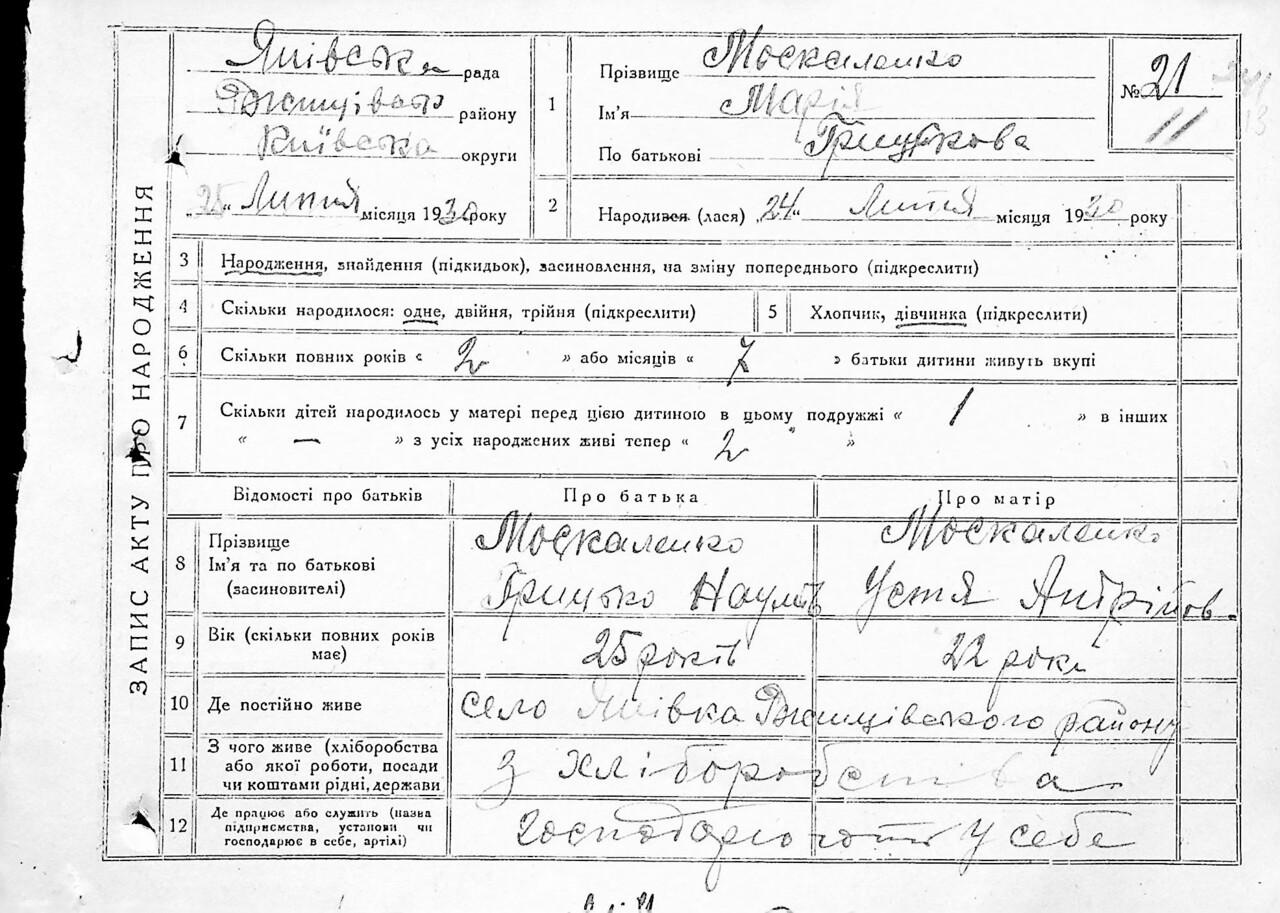 ЗАПИС АКТУ ПРО НАРОДЖЕННЯ
Янівська рада
району
Київська округи
"25" Липня місяця 1930 року
1
Прізвище Москаленко
Ім'я Марія
По батькові Грицькова
№ 21
11
2 Народився (лася) 24" Липня місяця 1930 року
3 Народження, знайдення (підкидьок), засиновлення, на зміну попереднього (підкреслити)
4 Скільки народилося: одне, двійня, трійня (підкреслити)
5 Хлопчик, дівчинка (підкреслити)
6 Скільки повних років « 2 » або місяців « 7 » батьки дитини живуть вкупі
7 Скільки дітей народилось у матері перед цією дитиною в цьому подружжі « 1 » в інших
« — » з усіх народжених живі тепер « 2 »
Відомості про батьків Про батька Про матір
8 Прізвище
Ім'я та по батькові
(засиновителі)
Москаленко
Грицько Наумів
Москаленко
Устя Андрійов.
9 Вік (скільки повних років
має)
25 років
22 роки
10 Де постійно живе
село Янівка району
11 З чого живе (хліборобства
або якої роботи, посади
чи коштами рідні, держави
з хліборобства
12 Де працює або служить (назва
підприємства, установи чи
господарює в себе, артілі)
у себе